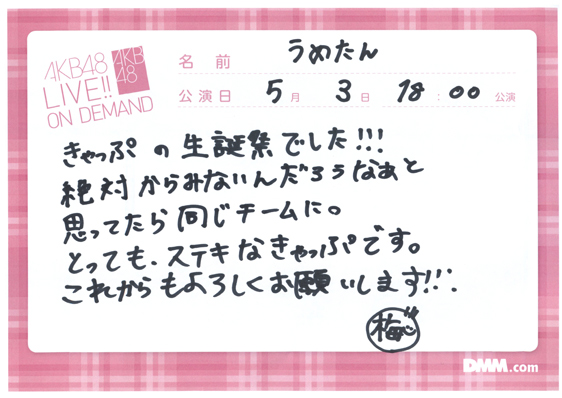 AKB48
LIVE!!
ON DEMAND
AKB
48
名前 うめたん
公演日 5月 3日 18:00 公演
きゃっぷ の 生誕祭でした!!!
絶対からみないんだろうなぁと
思ってたら同じチームに。
とっても、ステキなきゃっぷです。
これからもよろしくお願いします!!!
梅
DMM.com